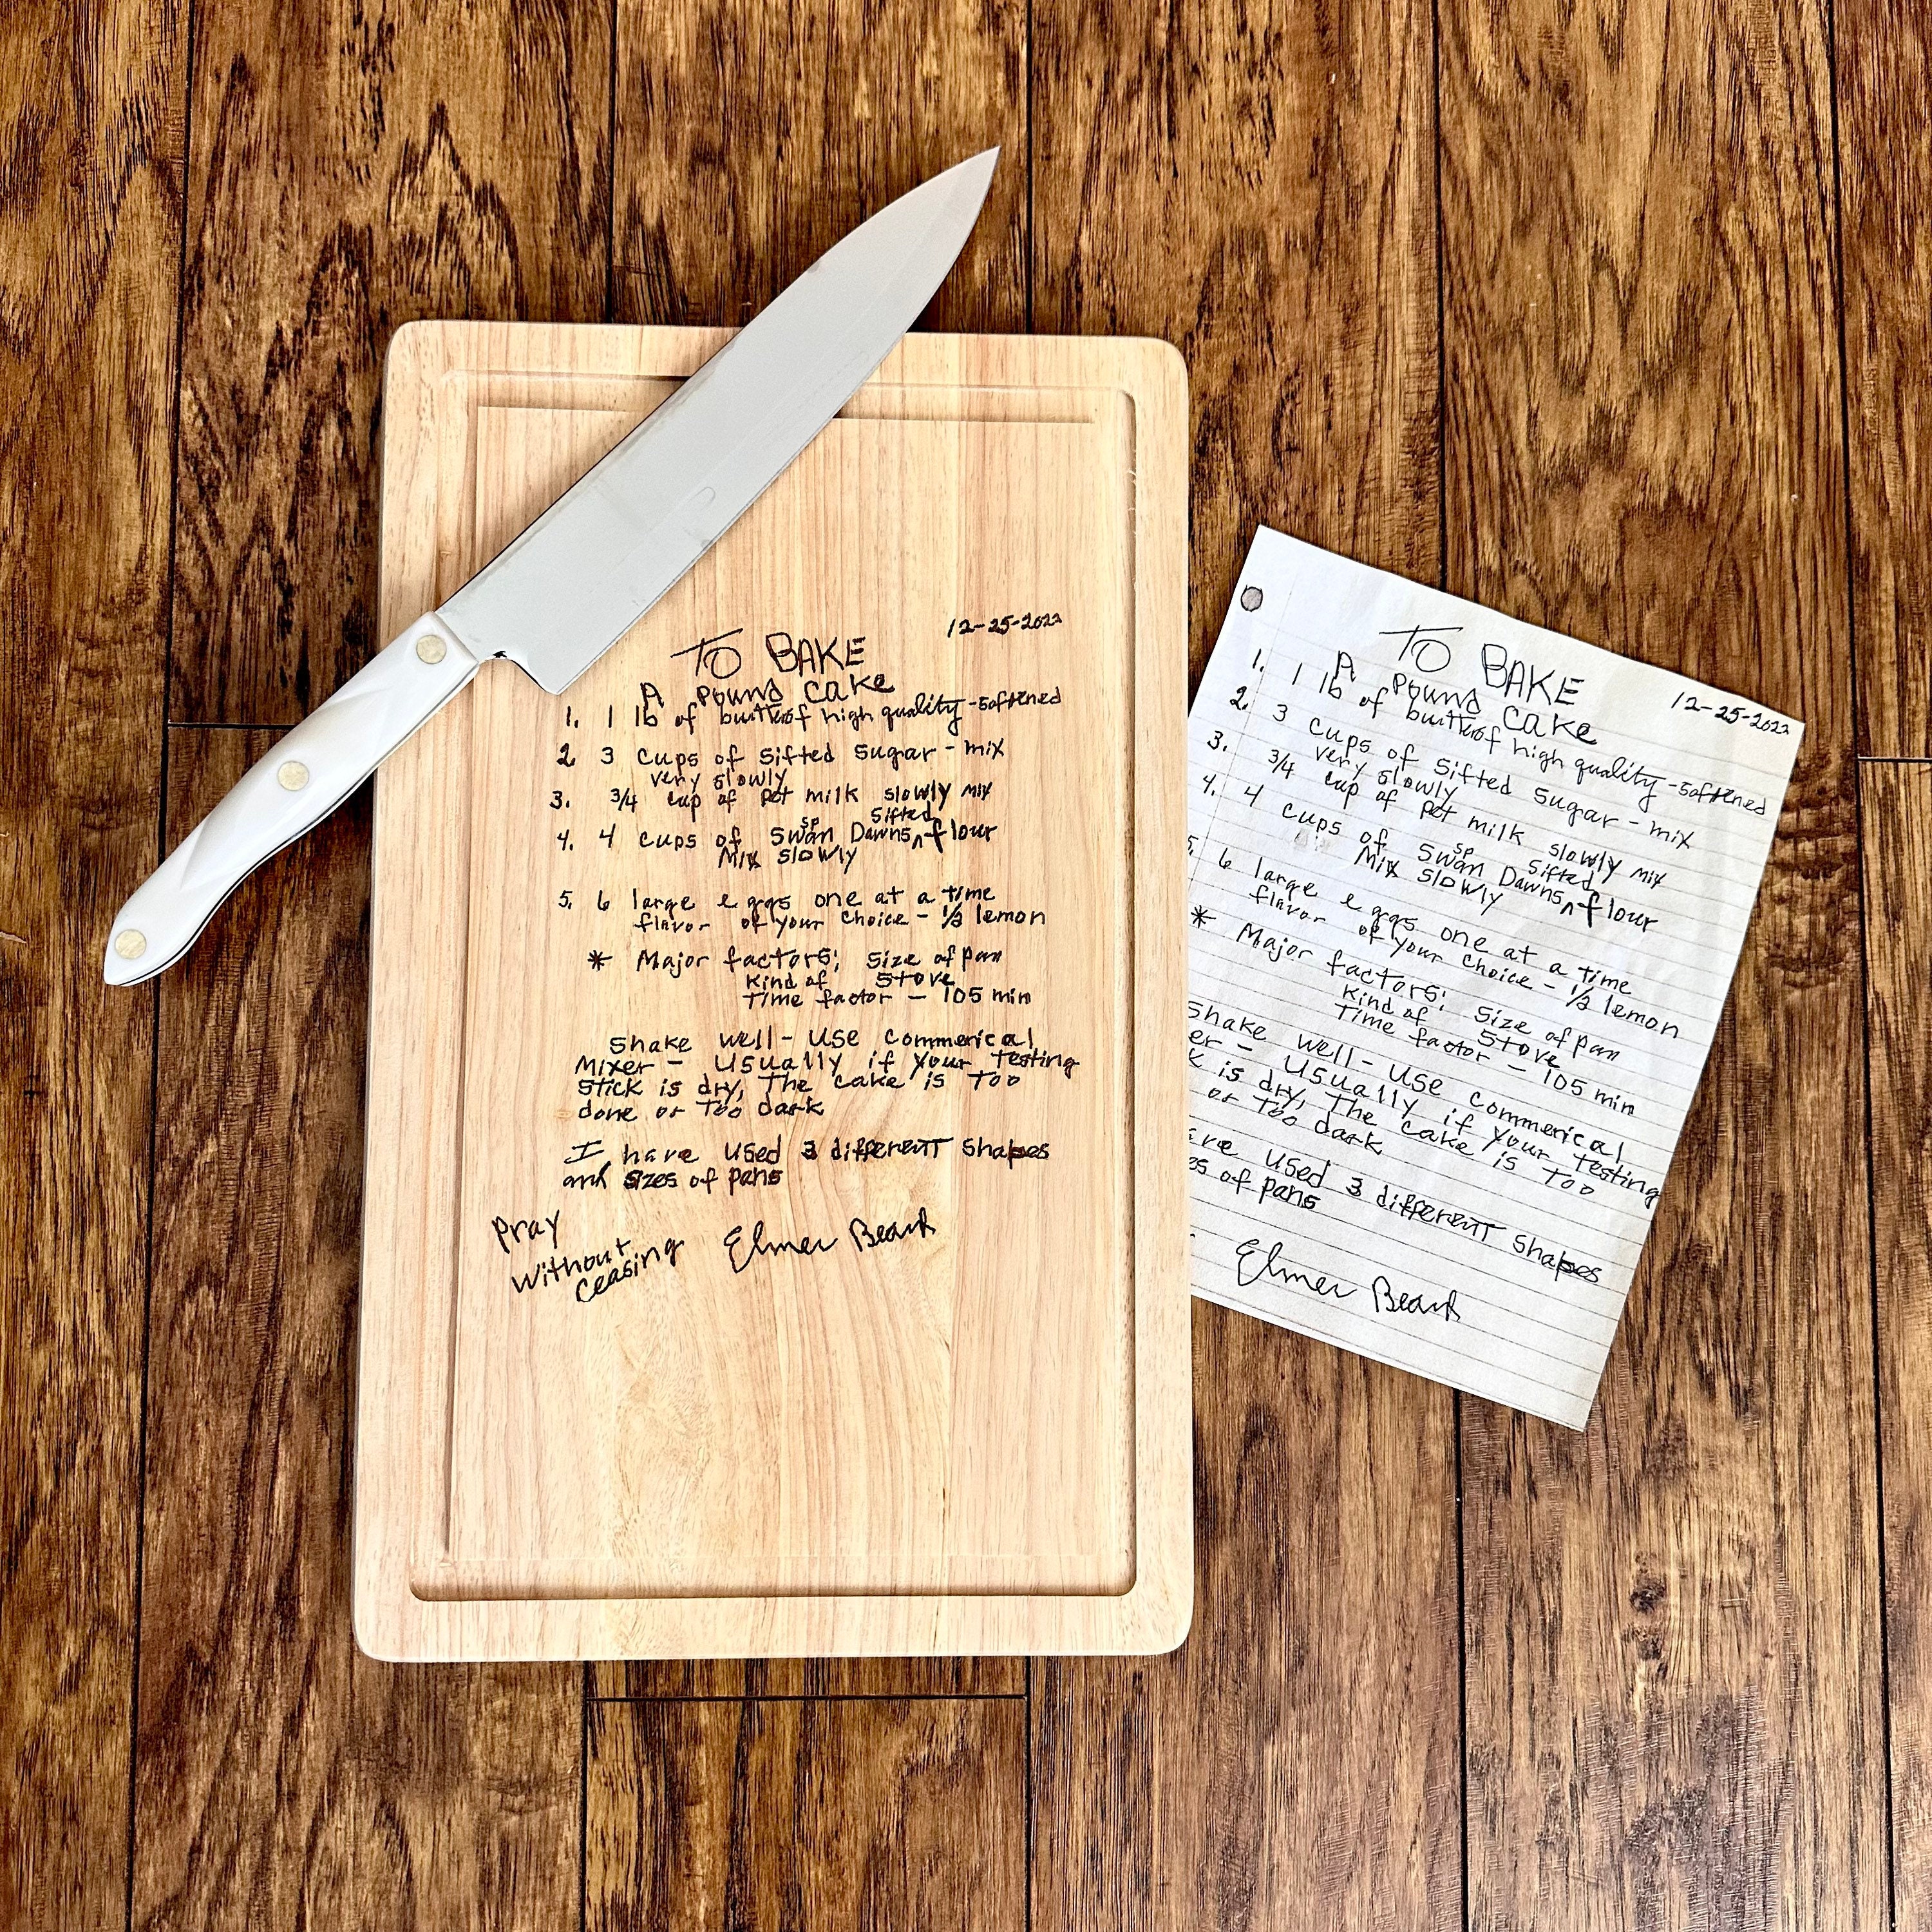 12-25-2022
TO BAKE
A Pound Cake
1. 1 lb of butter of high quality - softened
2. 3 cups of sifted sugar - mix
very slowly
3. 3/4 cup of pet milk slowly mix
sp sifted
4. 4 cups of Swan Dawns ^ flour
Mix slowly
5. 6 large eggs one at a time
flavor of your choice - 1/2 lemon
* Major factors; Size of pan
Kind of Stove
Time factor - 105 min
Shake well - Use commerical
Mixer - Usually if your testing
stick is dry, The cake is Too
done or Too dark
I have used 3 different shapes
and sizes of pans
Pray
Without
ceasing
Elmer Beard
TO BAKE
12-25-2022
A Pound Cake
1. 1 lb of butter of high quality - softened
2. 3 cups of sifted sugar - mix
very slowly
3. 3/4 cup of pet milk slowly mix
sp sifted
4. 4 cups of Swan Dawns ^ flour
Mix slowly
5. 6 large eggs one at a time
flavor of your choice - 1/2 lemon
* Major factors; Size of pan
Kind of Stove
Time factor - 105 min
Shake well - Use commerical
er - Usually if your testing
k is dry, The cake is Too
or Too dark
ave used 3 different shapes
es of pans
Elmer Beard